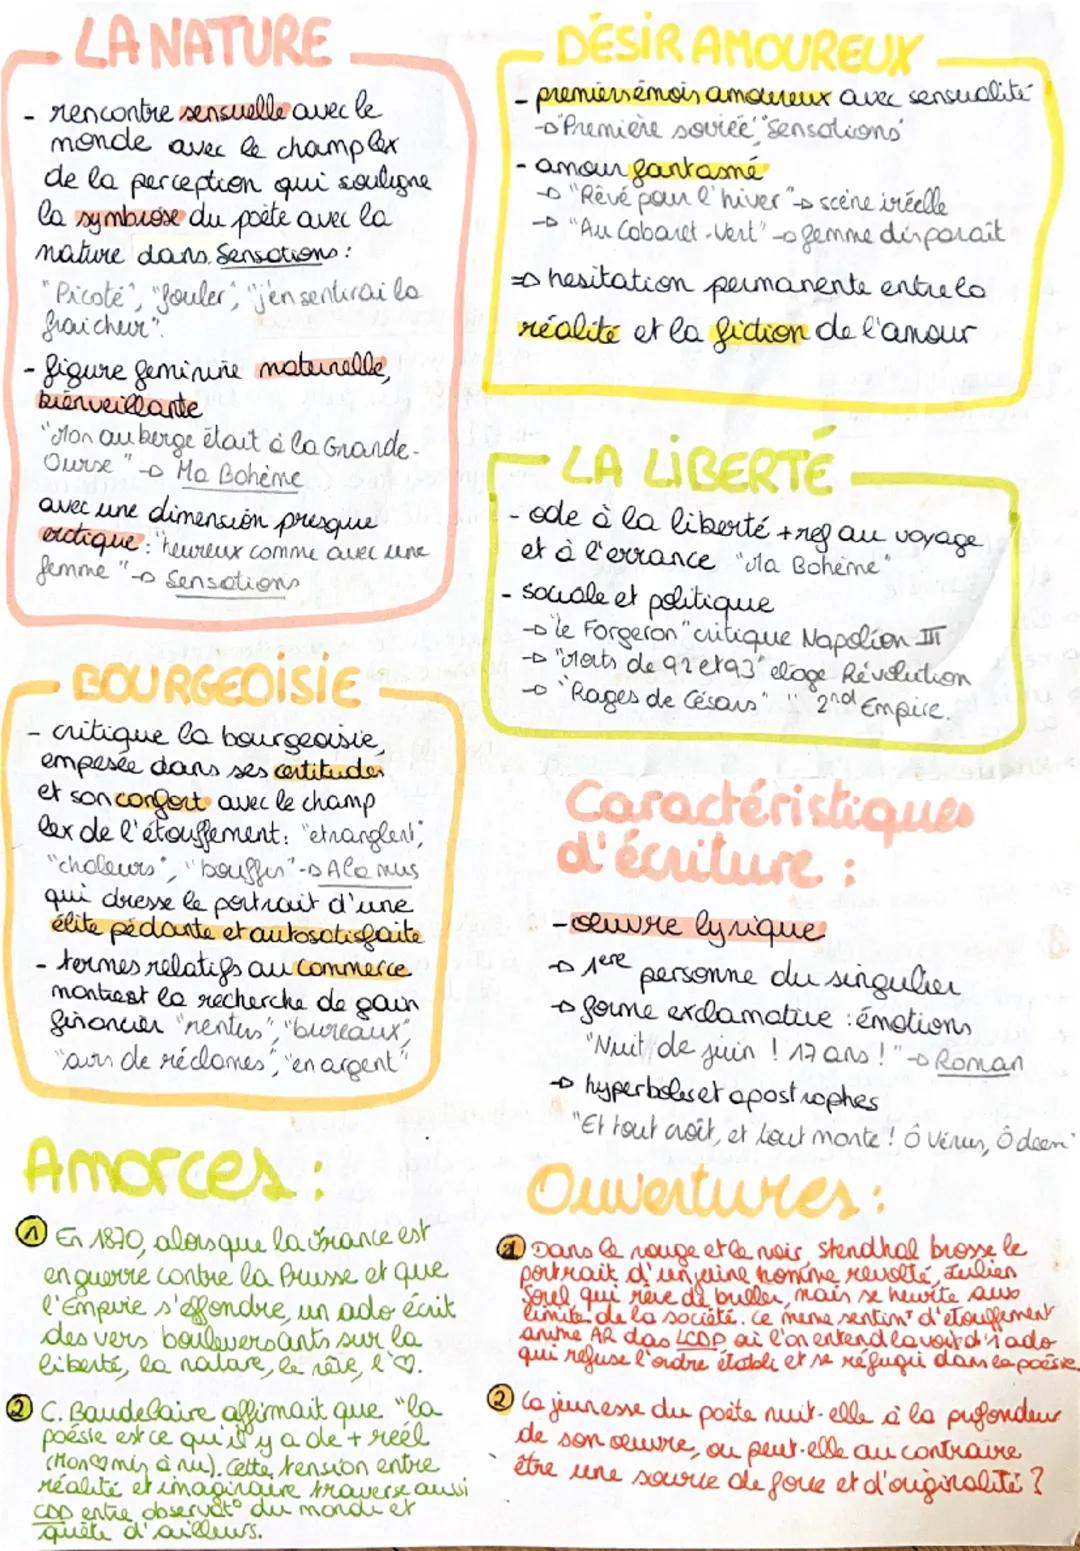 LA NATURE
- rencontre sensuelle avec le
monde avec le champ lex
de la perception qui souligne
la symbiose du poète avec la
nature dans Sensations :
"Picoté", "fouler", "j'en sentirai la
fraicheur".
- figure feminine maternelle,
bienveillante
"Mon auberge était à la Grande-
Ourse" → Ma Bohème
avec une dimension presque
erotique : "heureux comme avec une
femme" → Sensations
BOURGEOISIE
- critique la bourgeoisie,
empesée dans ses certitudes
et son confort avec le champ
lex de l'étouffement : "etranglent",
"chaleurs", "bouffis" → A la mus
qui dresse le portrait d'une
élite pédante et autosatisfaite
- termes relatifs au commerce
montrent la recherche de gain
financier "rentes", "bureaux",
"airs de réclames", "en argent"
Amorces :
① En 1870, alors que la France est
en guerre contre la Prusse et que
l'Empire s'effondre, un ado écrit
des vers bouleversants sur la
liberté, la nature, le rêve, l'♡.
② C. Baudelaire affirmait que "la
poésie est ce qu'il y a de + réel
(Mon cœur mis à nu). Cette tension entre
réalité et imaginaire traverse aussi
CDD entre observat° du monde et
quête d'ailleurs.
DÉSIR AMOUREUX
- premiers émois amoureux avec sensualité
→ "Première soirée" "Sensations"
- amour fantasmé
→ "Rêvé pour l'hiver" → scène iréelle
→ "Au Cabaret-Vert" → femme disparait
⇒ hesitation permanente entre la
réalité et la fiction de l'amour
LA LIBERTÉ
- ode à la liberté + ref au voyage
et à l'errance "Ma Bohème"
- sociale et politique
→ "le Forgeron" critique Napoléon III
→ "Morts de 92 et 93" eloge Révolution
→ "Rages de Césars" " 2nd Empire.
Caractéristiques
d'écriture :
- œuvre lyrique
→ 1ere personne du singulier
→ forme exclamative : émotions
"Nuit de juin ! 17 ans !" → Roman
→ hyperboles et apostrophes
"Et tout croît, et tout monte ! Ô Vénus, Ô déesse"
Ouvertures :
① Dans le rouge et le noir, Stendhal brosse le
portrait d'un jeune homme revolté, Julien
Sorel qui rêve de briller, mais se heurte aux
limites de la société. Ce meme sentimt d'etouffement
anime AR das LCDD où l'on entend la voix d'1 ado
qui refuse l'ordre établi et se réfugie dans la poésie
② La jeunesse du poète nuit-elle à la profondeur
de son œuvre, ou peut-elle au contraire
être une source de force et d'originalité ?